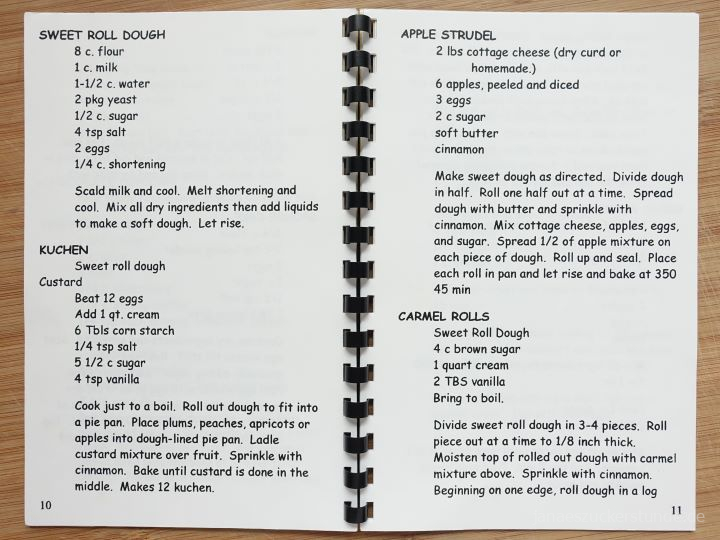 SWEET ROLL DOUGH
8 c. flour
1 c. milk
1-1/2 c. water
2 pkg yeast
1/2 c. sugar
4 tsp salt
2 eggs
1/4 c. shortening
Scald milk and cool. Melt shortening and
cool. Mix all dry ingredients then add liquids
to make a soft dough. Let rise.
KUCHEN
Sweet roll dough
Custard
Beat 12 eggs
Add 1 qt. cream
6 Tbls corn starch
1/4 tsp salt
5 1/2 c sugar
4 tsp vanilla
Cook just to a boil. Roll out dough to fit into
a pie pan. Place plums, peaches, apricots or
apples into dough-lined pie pan. Ladle
custard mixture over fruit. Sprinkle with
cinnamon. Bake until custard is done in the
middle. Makes 12 kuchen.
10
APPLE STRUDEL
2 lbs cottage cheese (dry curd or
homemade.)
6 apples, peeled and diced
3 eggs
2 c sugar
soft butter
cinnamon
Make sweet dough as directed. Divide dough
in half. Roll one half out at a time. Spread
dough with butter and sprinkle with
cinnamon. Mix cottage cheese, apples, eggs,
and sugar. Spread 1/2 of apple mixture on
each piece of dough. Roll up and seal. Place
each roll in pan and let rise and bake at 350
45 min
CARMEL ROLLS
Sweet Roll Dough
4 c brown sugar
1 quart cream
2 TBS vanilla
Bring to boil.
Divide sweet roll dough in 3-4 pieces. Roll
piece out at a time to 1/8 inch thick.
Moisten top of rolled out dough with carmel
mixture above. Sprinkle with cinnamon.
Beginning on one edge, roll dough in a log
11